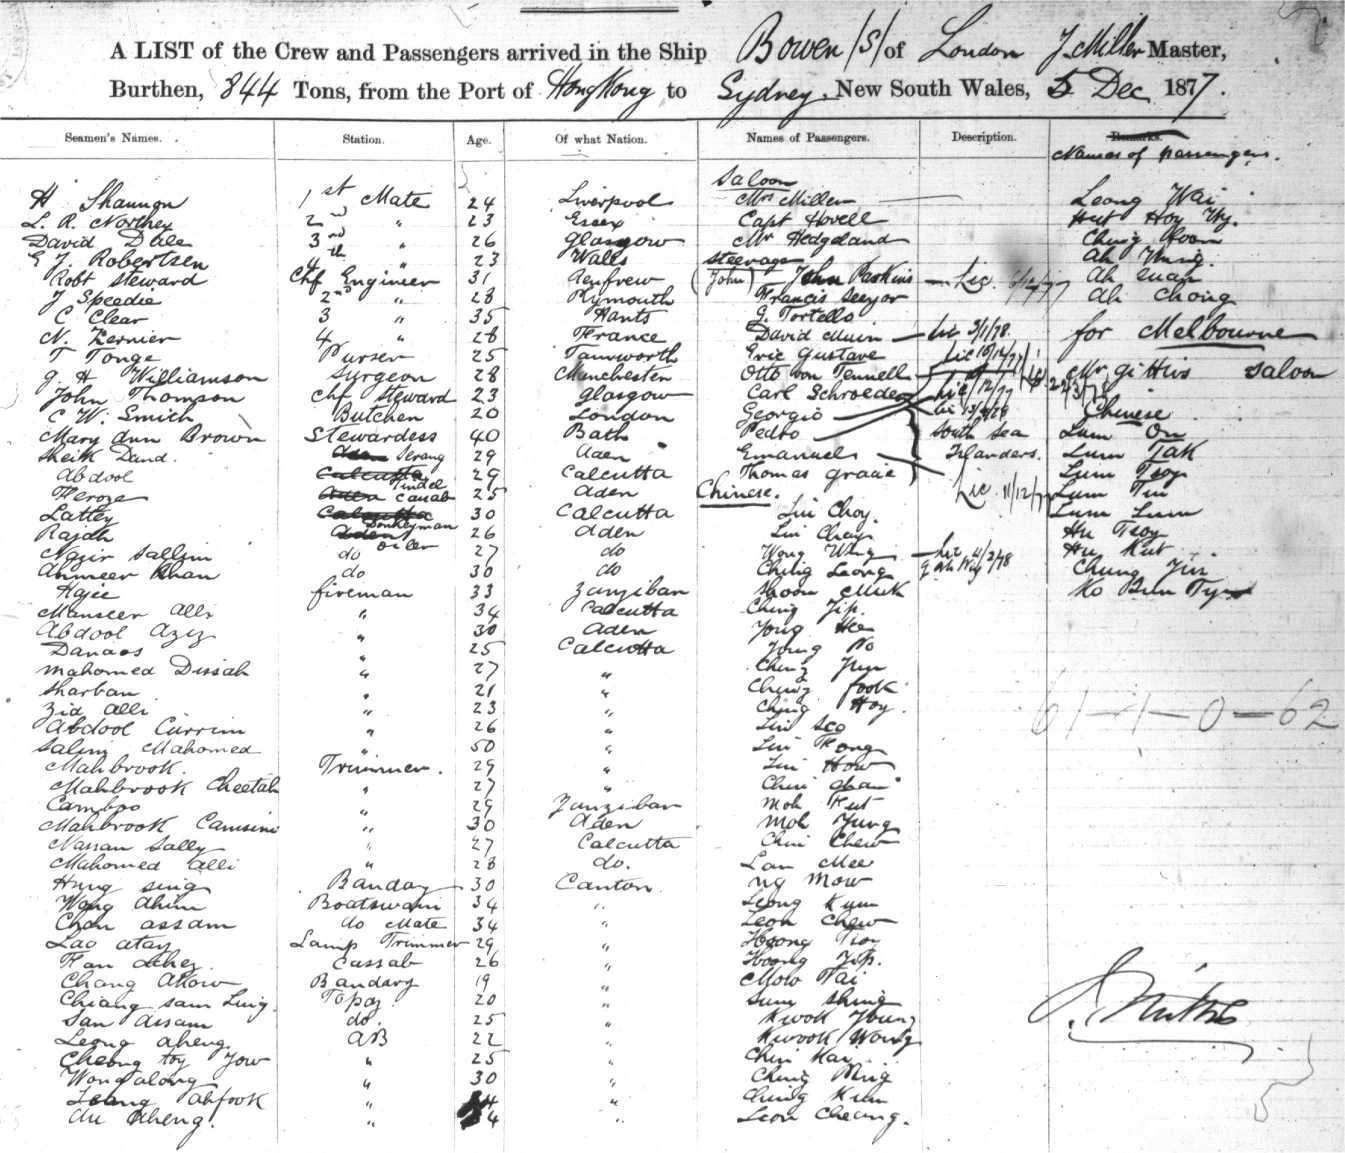 A LIST of the Crew and Passengers arrived in the Ship Bowen (S) of London J. Miller Master,
Burthen, 844 Tons, from the Port of Hong Kong to Sydney, New South Wales, 5 Dec 1877.
Seamen's Names. Station. Age. Of what Nation. Names of Passengers. Description. Remarks.
Names of passengers.
Saloon
H Shannon 1st Mate 24 Liverpool Mrs Miller Leong Wai
L. R. Northey 2nd " 23 Essex Capt Hovell Hut Hoy
David Dale 3rd " 26 Glasgow Mr Hedgeland Ching Hoon
E J. Robertson 4th " 23 Wales Steerage Ah
Robt Steward Chf Engineer 31 Renfrew (John) John Parkins Lic. Ah
J Speedie 2nd " 28 Plymouth Francis Ah Chong
C Clear 3 " 35 Hants G. Tortello
N. 4 " 28 France David Lic 3/1/78 for Melbourne
T Tonge Purser 25 Tamworth Eric Gustave Lic 10/12/77
G. H Williamson Surgeon 28 Manchester Otto von Tennell Mr Saloon
John Thompson Chf Steward 23 Glasgow Carl Schroeder Lic /12/77
C W. Smith Butcher 20 London Georgio Lic Chinese
Mary Ann Brown Stewardess 40 Bath Pedro South Sea Lum On
Sheik Daud. Aden Serang 29 Aden Emanuel Islanders. Lum Tak
Abdool Calcutta Tindel 29 Calcutta Thomas Gracie Lum Tsoy
Feroze Aden Cassab 25 Aden Chinese. Lic. 11/12/77 Lum
Lattey Calcutta 30 Calcutta Lui Choy. Lum Lum
Rajah Aden Donkeyman 26 Aden Lui Hu Tsoy
Nazir Sallim do oiler 27 do Wong Wing Lic 4/2/78 Hu Kut
Ahmeer Khan do 30 do Ching Leong Chung
Hajee fireman 33 Zanziban Ko
Manseer Alli " 34 Calcutta Ching Yip.
Abdool Aziz " 30 Aden Yong Hee
Danaos " 25 Calcutta Yong Po
Mahomed Dissah " 27 " Ching Yun
Sharban " 21 " Ching fook
Zia Alli " 23 " Ching Hoy. 61 – 1 – 0 – 62
Abdool Currim " 26 " Lui Seo
Salim Mahomed " 50 " Lui Kong
Mahbrook. Trimmer. 29 " Lui How
Mahbrook Cheetah " 27 " Chin
Cambpo " 29 Zanziban Moh Kut
Mahbrook Camsini " 30 Aden Moh Yung
Nassau Sally " 27 Calcutta Chin Chew
Mahomed Alli " 28 do. Lan Mee
Hung Sing Banday 30 Canton Ng Mow
Wong Ahim Boatswain 34 " Leong Kum
Chan Assam do Mate 34 " Leon Chew
Lao Atay Lamp Trimmer 29 " Hoong Tsoy
Cassab 26 " Hoong Yip.
Chang Akow Bandary 19 " Mow Tai
Chiang Sam Lung. Topaz 20 " Sum Shing
San Assam do. 25 " Kwok Young
Leong Aheng. AB 22 " Kwook Wong
Cheong toy Yow " 25 " Chin Kai
Wong along " 30 " Ching Ming
Leang Ahfook " " Ching Kum
Au Aheng. " 34 " Leon Cheung.